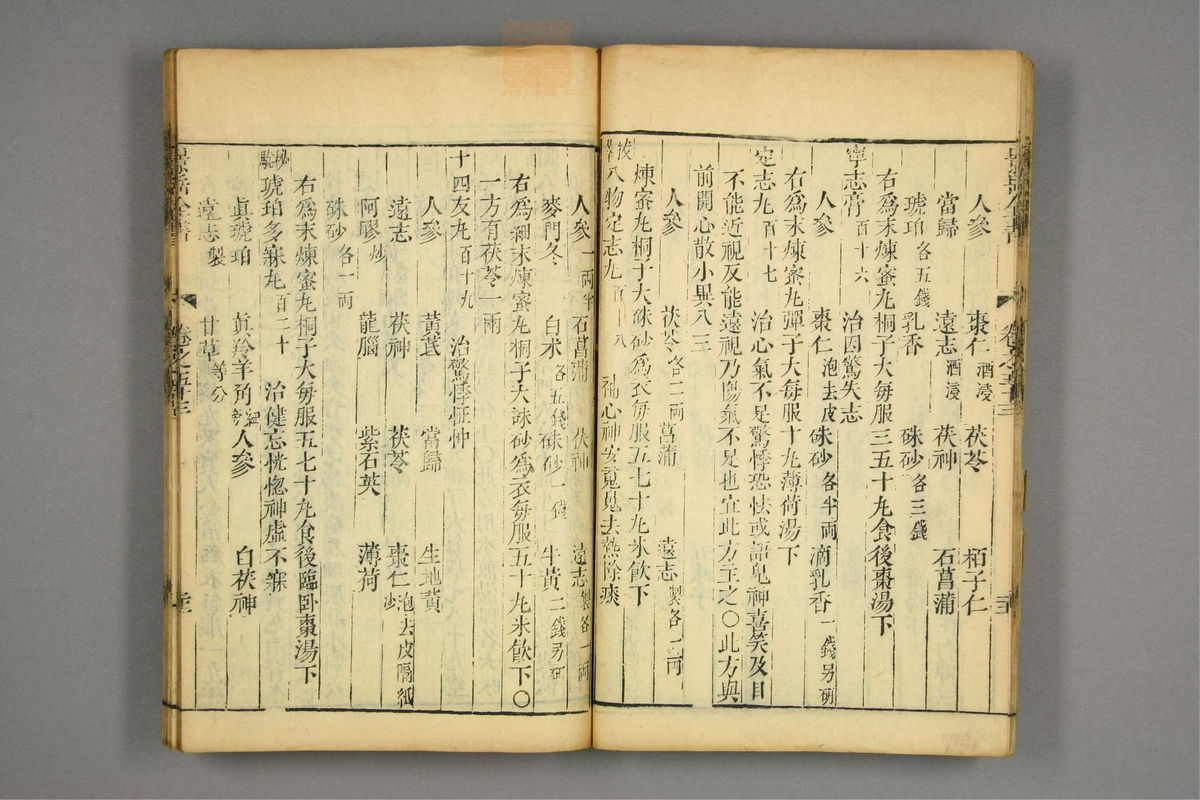 人參　棗仁酒浸　茯苓　栢子仁
當歸　遠志酒浸　茯神　石菖蒲
琥珀各五錢　乳香　硃砂各三錢
右爲末煉蜜丸桐子大每服三五十丸食後棗湯下
寧志膏百十六　治因驚失志
人參　棗仁泡去皮　硃砂各半兩　滴乳香一錢另研
右爲末煉蜜丸彈子大每服十丸薄荷湯下
定志丸百十七　治心氣不足驚悸恐怯或語鬼神喜笑及目
不能近視反能遠視乃陽氣不足也宜此方主之〇此方與
前開心散小異八三
人參　茯苓各二兩　菖蒲　遠志製各一兩
煉蜜丸桐子大硃砂爲衣每服五七十丸米飲下
八物定志丸百十八　補心神安魂魄去熱除痰
人參一兩半　石菖蒲　茯神　遠志製各一兩
麥門冬　白朮各五錢　硃砂一錢　牛黃二錢另研
右爲細末煉蜜丸桐子大硃砂爲衣每服五十丸米飲下〇
一方有茯苓一兩
十四友丸百十九　治驚悸怔忡
人參　黃芪　當歸　生地黃
遠志　茯神　茯苓　棗仁泡去皮隔紙炒
阿膠炒　龍腦　紫石英　薄荷
硃砂各一兩
右爲末煉蜜丸桐子大每服五七十丸食後臨臥棗湯下
秘驗琥珀多寐丸百二十　治健忘恍惚神虛不寐
眞琥珀　眞羚羊角　人參　白茯神
遠志製　甘草等分
景岳全書　卷之五十三